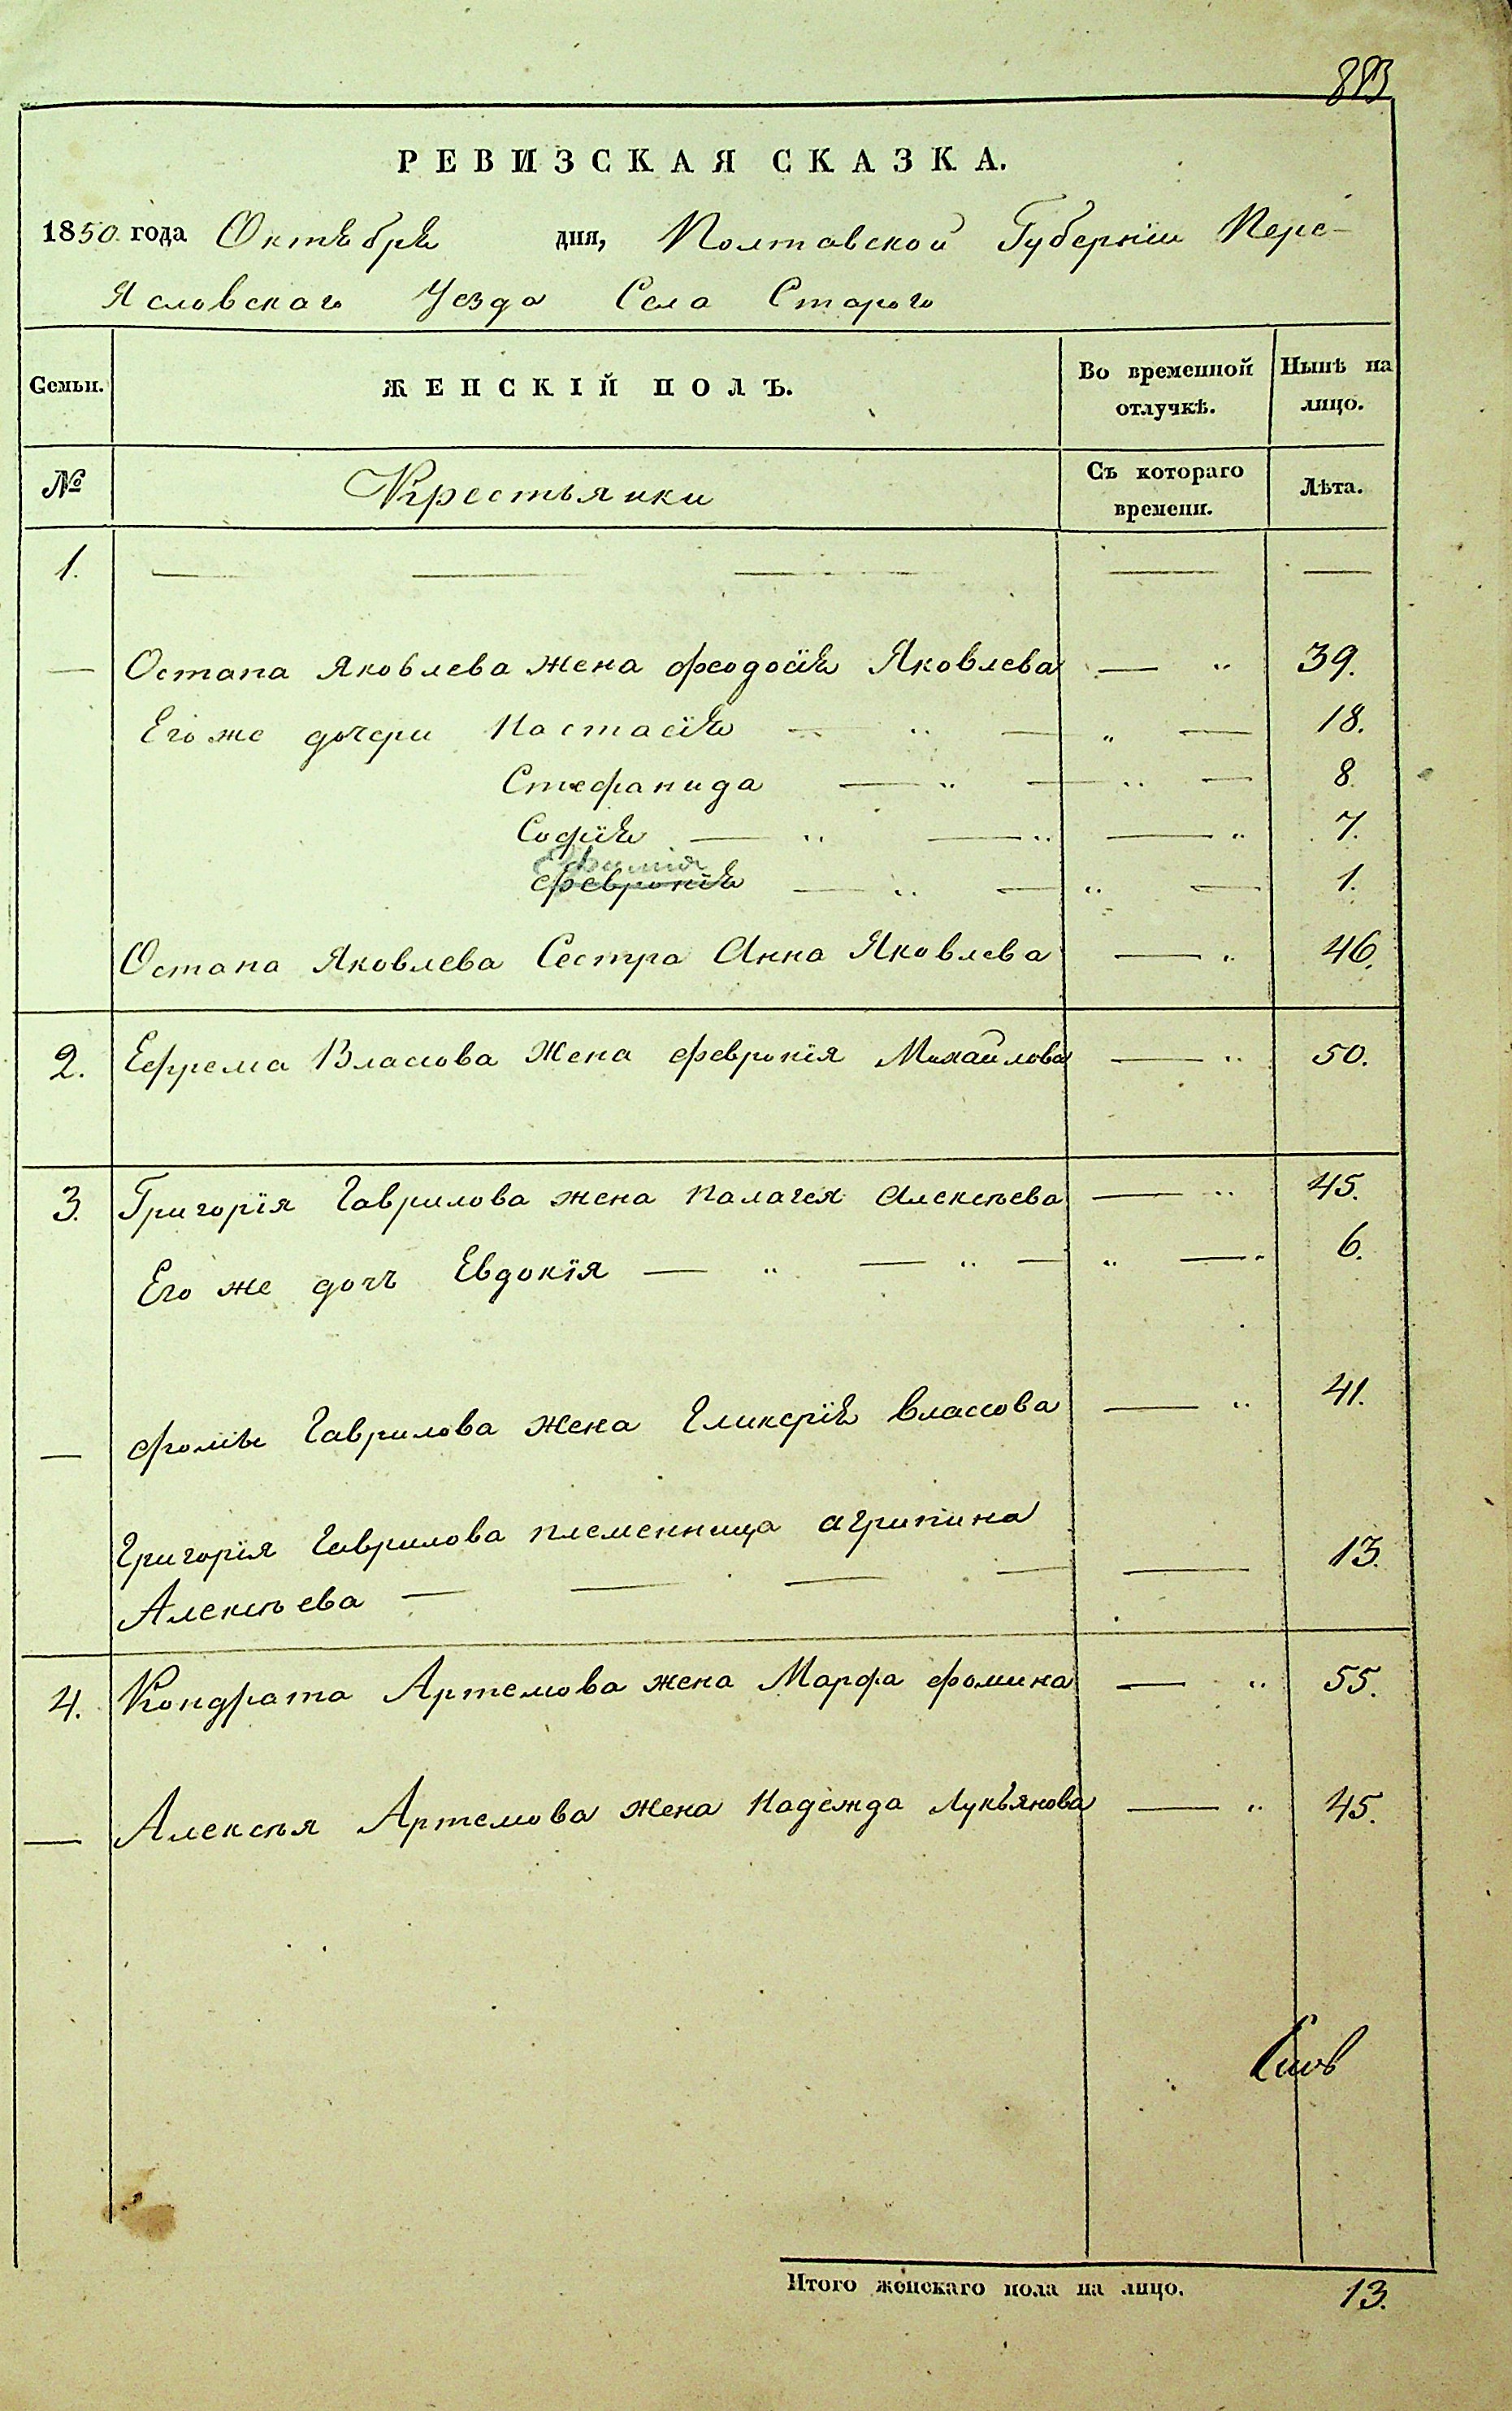 РЕВИЗСКАЯ СКАЗКА.
1850 года Октября дня, Полтавской Губернїи Пере-
Ясловскаго Уезда Села Старого
Семьи. ЖЕНСКІЙ ПОЛЪ. Во временной отлучкѣ. Нынѣ на лицо.
№ Крестьянки Съ котораго времени. Лѣта.
1. — — — — —
— Остапа Яковлева жена Феодосїя Яковлева — " 39.
Его же дочери Настасїя — " — " — 18.
Стефанида — " — " — 8.
Софїя — " — " — " 7.
Ефимия
Февронїя — " — " — 1.
Остапа Яковлева Сестра Анна Яковлева — " 46.
2. Ефрема Власова Жена Февронїя Михайлова — " 50.
3. Григорїя Гаврилова жена Палагея Алексѣева — " 45.
Его же дочь Евдокїя — " — " — " — " 6.
— Фомы Гаврилова жена Гликерїя Власова — " 41.
Григорїя Гаврилова племенница Агрипина
Алексѣева — — — — — 13.
4. Кондрата Артемова жена Марфа Фомина — " 55.
— Алексѣя Артемова жена Надежда Лукьянова — " 45.
Итого женскаго пола на лицо. 13.